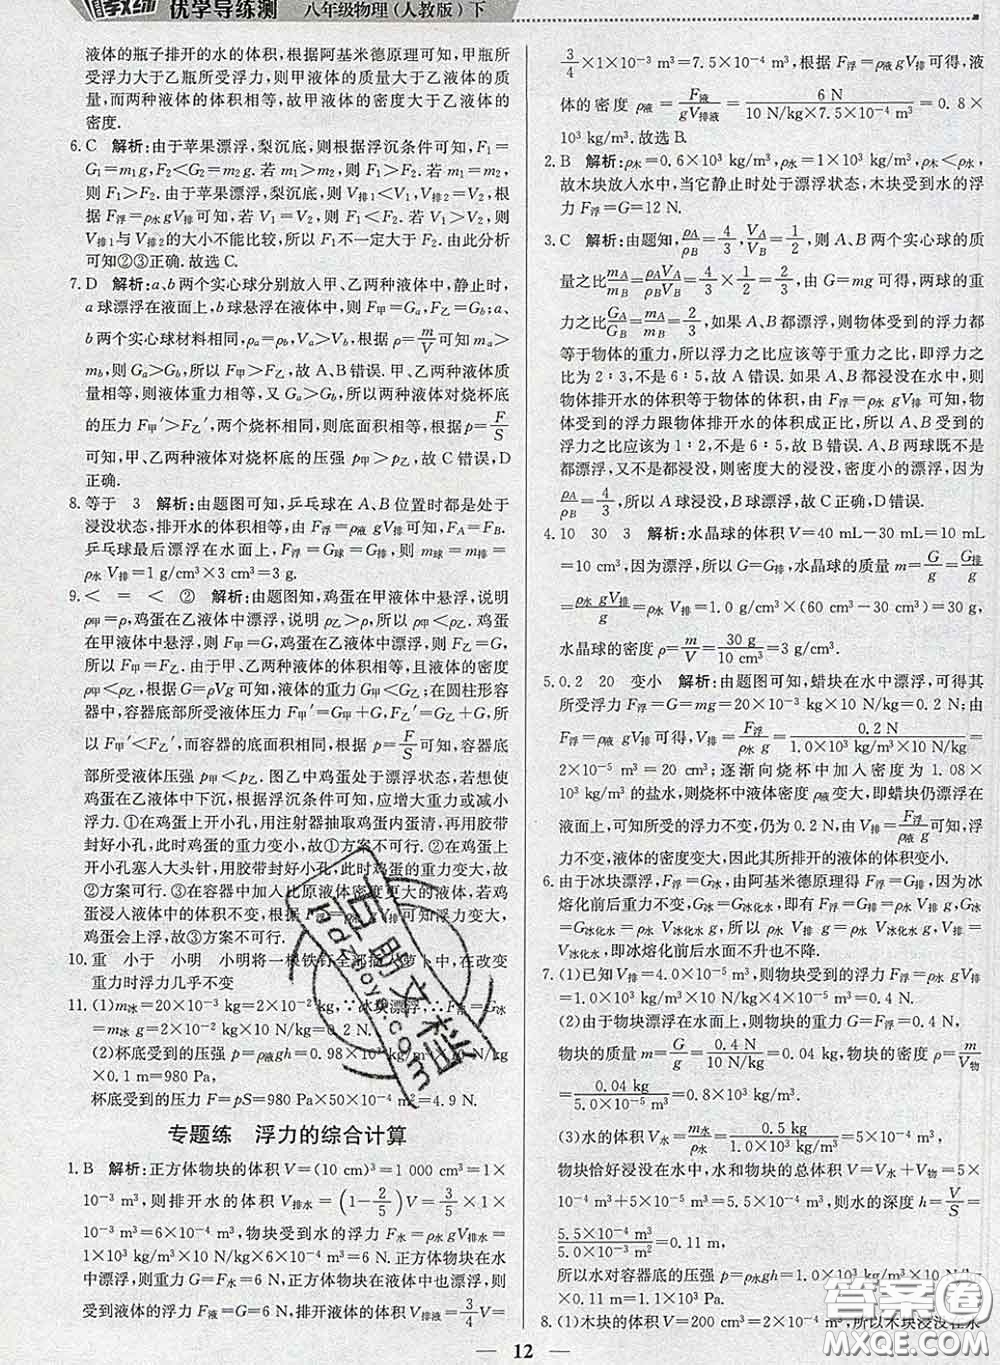 优学导练测 八年级物理(人教版)下
液体的瓶子排开的水的体积,根据阿基米德原理可知,甲瓶所
受浮力大于乙瓶所受浮力,则甲液体的质量大于乙液体的质
量,而两种液体的体积相等,故甲液体的密度大于乙液体的
密度.
6. C 解析:由于苹果漂浮,梨沉底,根据浮沉条件可知,F₁=
G₁=m₁g,F₂<G₂=m₂g. 若 m₁=m₂,
则 F₁>F₂. 由于苹果漂浮,梨沉底,V排1<V₁,V排2=V₂,
根据 F浮=ρ水gV排可知,若 V₁=V₂,则 F₁<F₂. 若 V₁>V₂,则
V排1与V排2的大小不能比较,所以 F₁不一定大于 F₂. 由此分析
可知②③正确. 故选 C.
7. D 解析:a、b两个实心球分别放入甲、乙两种液体中,静止时,
a球漂浮在液面上,b球悬浮在液体中,所以 F甲=Ga,F乙=Gb;a、
b两个实心球材料相同,ρa=ρb,Va>Vb. 根据 ρ=m/V 可知 ma>
mb,则 Ga>Gb,所以 F甲>F乙,故 A、B错误. 甲、乙两种液体
等高,则液体重力相等,又 Ga>Gb,所以两种液体对烧杯底
的压力 F甲′>F乙′,两个烧杯相同,则底面积相等,根据 p=F/S
可知,甲、乙两种液体对烧杯底的压强 p甲>p乙,故 C错误,D
正确.
8. 等于 3 解析:由题图可知,乒乓球在 A、B位置时都是处于
浸没状态,排开水的体积相等,由 F浮=ρ液gV排可知,FA=FB.
乒乓球最后漂浮在水面上,F浮=G球=G排,所以 m球=m排=
ρ水V排=1 g/cm³×3 cm³=3 g.
9. < = < ② 解析:由题图知,鸡蛋在甲液体中悬浮,说明
ρ甲=ρ,鸡蛋在乙液体中漂浮,说明 ρ乙>ρ,所以 ρ甲<ρ乙. 鸡蛋
在甲液体中悬浮,所以 F甲=G,鸡蛋在乙液体中漂浮,F乙=G,
所以 F甲=F乙. 由于甲、乙两种液体的体积相等,且液体的密度
ρ甲<ρ乙,根据 G=ρVg 可知,液体的重力 G甲<G乙;在圆柱形容
器中,容器底部所受液体压力 F甲′=G甲+G,F乙′=G乙+G,所
以 F甲′<F乙′,而容器的底面积相等,根据 p=F/S 可知,容器底
部所受液体压强 p甲<p乙. 图乙中鸡蛋处于漂浮状态,若想使
鸡蛋在乙液体中下沉,根据浮沉条件可知,应增大重力或减小
浮力. ①在鸡蛋上开小孔,用注射器抽取鸡蛋内蛋清,再用胶带
封好小孔,此时鸡蛋的重力变小,故①方案不可行. ②在鸡蛋上
开小孔塞人大头针,用胶带封好小孔,此时鸡蛋的重力变大,故
②方案可行. ③在容器中倒入比原液体密度更大的液体,若鸡
蛋浸入液体中的体积不变,根据 F浮=ρ液gV排可知浮力变大,
鸡蛋会上浮,故③方案不可行.
10. 重 小于 小明 小明将一根铁钉全部插入萝卜中,在改变
重力时浮力几乎不变
11. (1)m冰=20×10⁻³ kg=2×10⁻² kg,∵冰块漂浮,∴F浮=G冰
=m冰g=2×10⁻² kg×10 N/kg=0.2 N.
(2)杯底受到的压强 p=ρ液gh=0.98×10³ kg/m³×10 N/kg
×0.1 m=980 Pa,
杯底受到的压力 F=pS=980 Pa×50×10⁻⁴ m²=4.9 N.
专题练 浮力的综合计算
1. B 解析:正方体物块的体积 V=(10 cm)³=1 000 cm³=1×
10⁻³ m³,则排开水的体积 V排水=(1-2/5)V=3/5×1×
10⁻³ m³=6×10⁻⁴ m³,物块受到水的浮力 F水=ρ水gV排水=
1×10³ kg/m³×10 N/kg×6×10⁻⁴ m³=6 N. 正方体物块在水
中漂浮,则重力 G=F水=6 N,正方体物块在液体中也漂浮,则
受到液体的浮力 F液=G=6 N,排开液体的体积 V排液=3/4V=
3/4×1×10⁻³ m³=7.5×10⁻⁴ m³,根据 F浮=ρ液gV排可得,液
体的密度 ρ液=F液/gV排液=6 N/(10 N/kg×7.5×10⁻⁴ m³)=0.8×
10³ kg/m³. 故选 B.
2. B 解析:ρ木=0.6×10³ kg/m³,ρ水=1×10³ kg/m³,ρ木<ρ水,
故木块放入水中,当它静止时处于漂浮状态,木块受到水的浮
力 F浮=G=12 N.
3. C 解析:由题知,ρA/ρB=4/3,VA/VB=1/2,则 A、B两个实心球的质
量之比 mA/mB=ρAVA/ρBVB=4/3×1/2=2/3,由 G=mg 可得,两球的重
力之比 GA/GB=mA/mB=2/3,如果 A、B都漂浮,则物体受到的浮力都
等于物体的重力,所以浮力之比应该等于重力之比,即浮力之比
为 2∶3,不是 6∶5,故 A错误. 如果 A、B都浸没在水中,则
物体排开水的体积等于物体的体积,由 F浮=ρ水gV排可知,物体
受到的浮力跟物体排开水的体积成正比,所以,A、B受到的
浮力之比应该为 1∶2,不是 6∶5,故 B错误. A、B两球既不是
都漂浮,又不是都浸没,则密度大的浸没,密度小的漂浮,因为
ρA/ρB=4/3,所以 A球浸没,B球漂浮,故 C正确,D错误.
4. 10 30 3 解析:水晶球的体积 V=40 mL-30 mL=10 mL
=10 cm³,因为漂浮,所以 G=G排,水晶球的质量 m=G/g=G排/g
=ρ水gV排/g=ρ水V排=1.0 g/cm³×(60 cm³-30 cm³)=30 g,
水晶球的密度 ρ=m/V=30 g/10 cm³=3 g/cm³.
5. 0.2 20 变小 解析:由题图可知,蜡块在水中漂浮,可得其
所受浮力 F浮=G=mg=20×10⁻³ kg×10 N/kg=0.2 N;由
F浮=ρ水gV排可得,V排=F浮/ρ水g=0.2 N/(1.0×10³ kg/m³×10 N/kg)=
2×10⁻⁵ m³=20 cm³;逐渐向烧杯中加入密度为 1.08×
10³ kg/m³ 的盐水,则烧杯中液体密度 ρ液变大,即蜡块仍漂浮在
液面上,可知所受的浮力不变,仍为 0.2 N,由 V排=F浮/ρ液g 可知,
浮力不变,液体的密度变大,因此其所排开的液体的体积变小.
6. 由于冰块漂浮,F浮=G冰,由阿基米德原理得 F浮=G排,因为冰
熔化前后重力不变,G冰=G冰化水,即有 F浮=G排=ρ水V排g=
G冰化水=ρ水V冰化水g,所以 V排=V冰化水,即冰熔化前后水面不升也不降.
7. (1)已知 V排=4.0×10⁻⁵ m³,则物块受到的浮力 F浮=ρ水gV排
=1.0×10³ kg/m³×10 N/kg×4.0×10⁻⁵ m³=0.4 N.
(2)由于物块漂浮在水面上,则物块的重力 G=F浮=0.4 N,
物块的质量 m=G/g=0.4 N/10 N/kg=0.04 kg,物块的密度 ρ=m/V物
=0.04 kg/5.0×10⁻⁵ m³=0.8×10³ kg/m³.
(3)水的体积 V水=m水/ρ水=0.5 kg/1.0×10³ kg/m³=5×10⁻⁴ m³,
物块恰好浸没在水中,水和物块的总体积 V=V水+V物=5×
10⁻⁴ m³+5×10⁻⁵ m³=5.5×10⁻⁴ m³,则水的深度 h=V/S
=5.5×10⁻⁴ m³/5.0×10⁻³ m²=0.11 m,
所以水对容器底的压强 p=ρ水gh=1.0×10³ kg/m³×10 N/kg
×0.11 m=1.1×10³ Pa.
8. (1)木块的体积 V=200 cm³=2×10⁻⁴ m³,所以木块浸没在水
12
答案圈
MXQE.COM